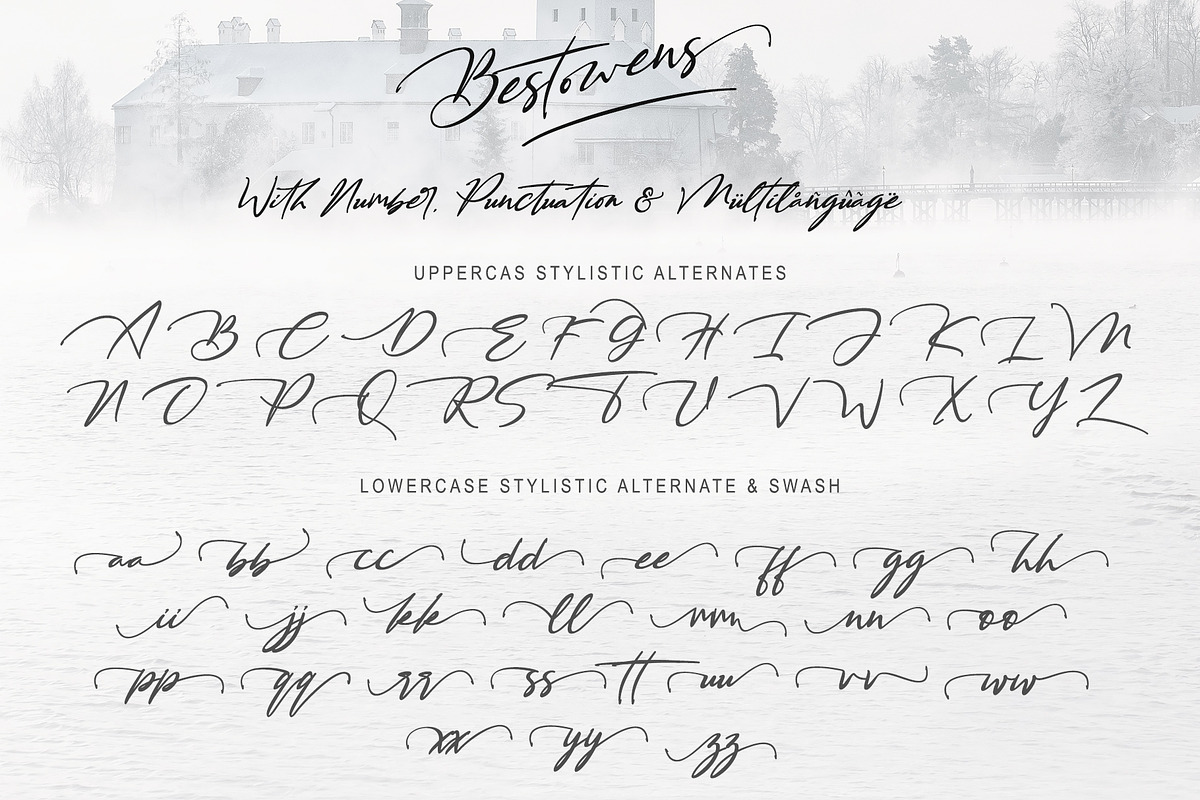 Bestowens
With Number, Punctuation & Mültilångûãgë
UPPERCAS STYLISTIC ALTERNATES
A B C D E F G H I J K L M
N O P Q R S T U V W X Y Z
LOWERCASE STYLISTIC ALTERNATE & SWASH
aa bb cc dd ee ff gg hh
ii jj kk ll mm nn oo
pp qq rr ss tt uu vv ww
xx yy zz